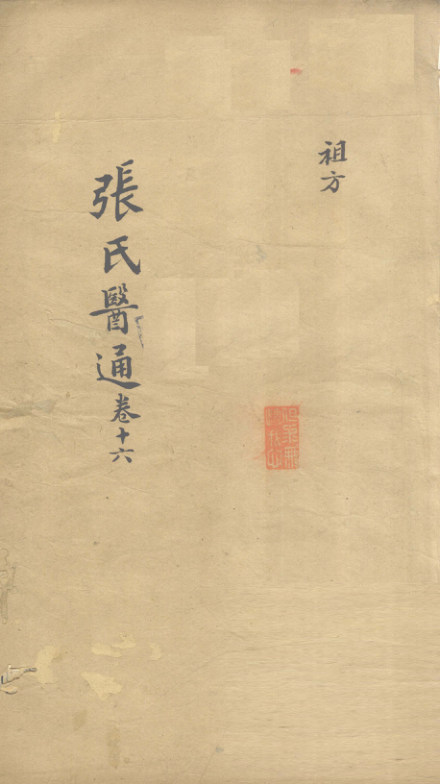 祖方
張氏醫通卷十六